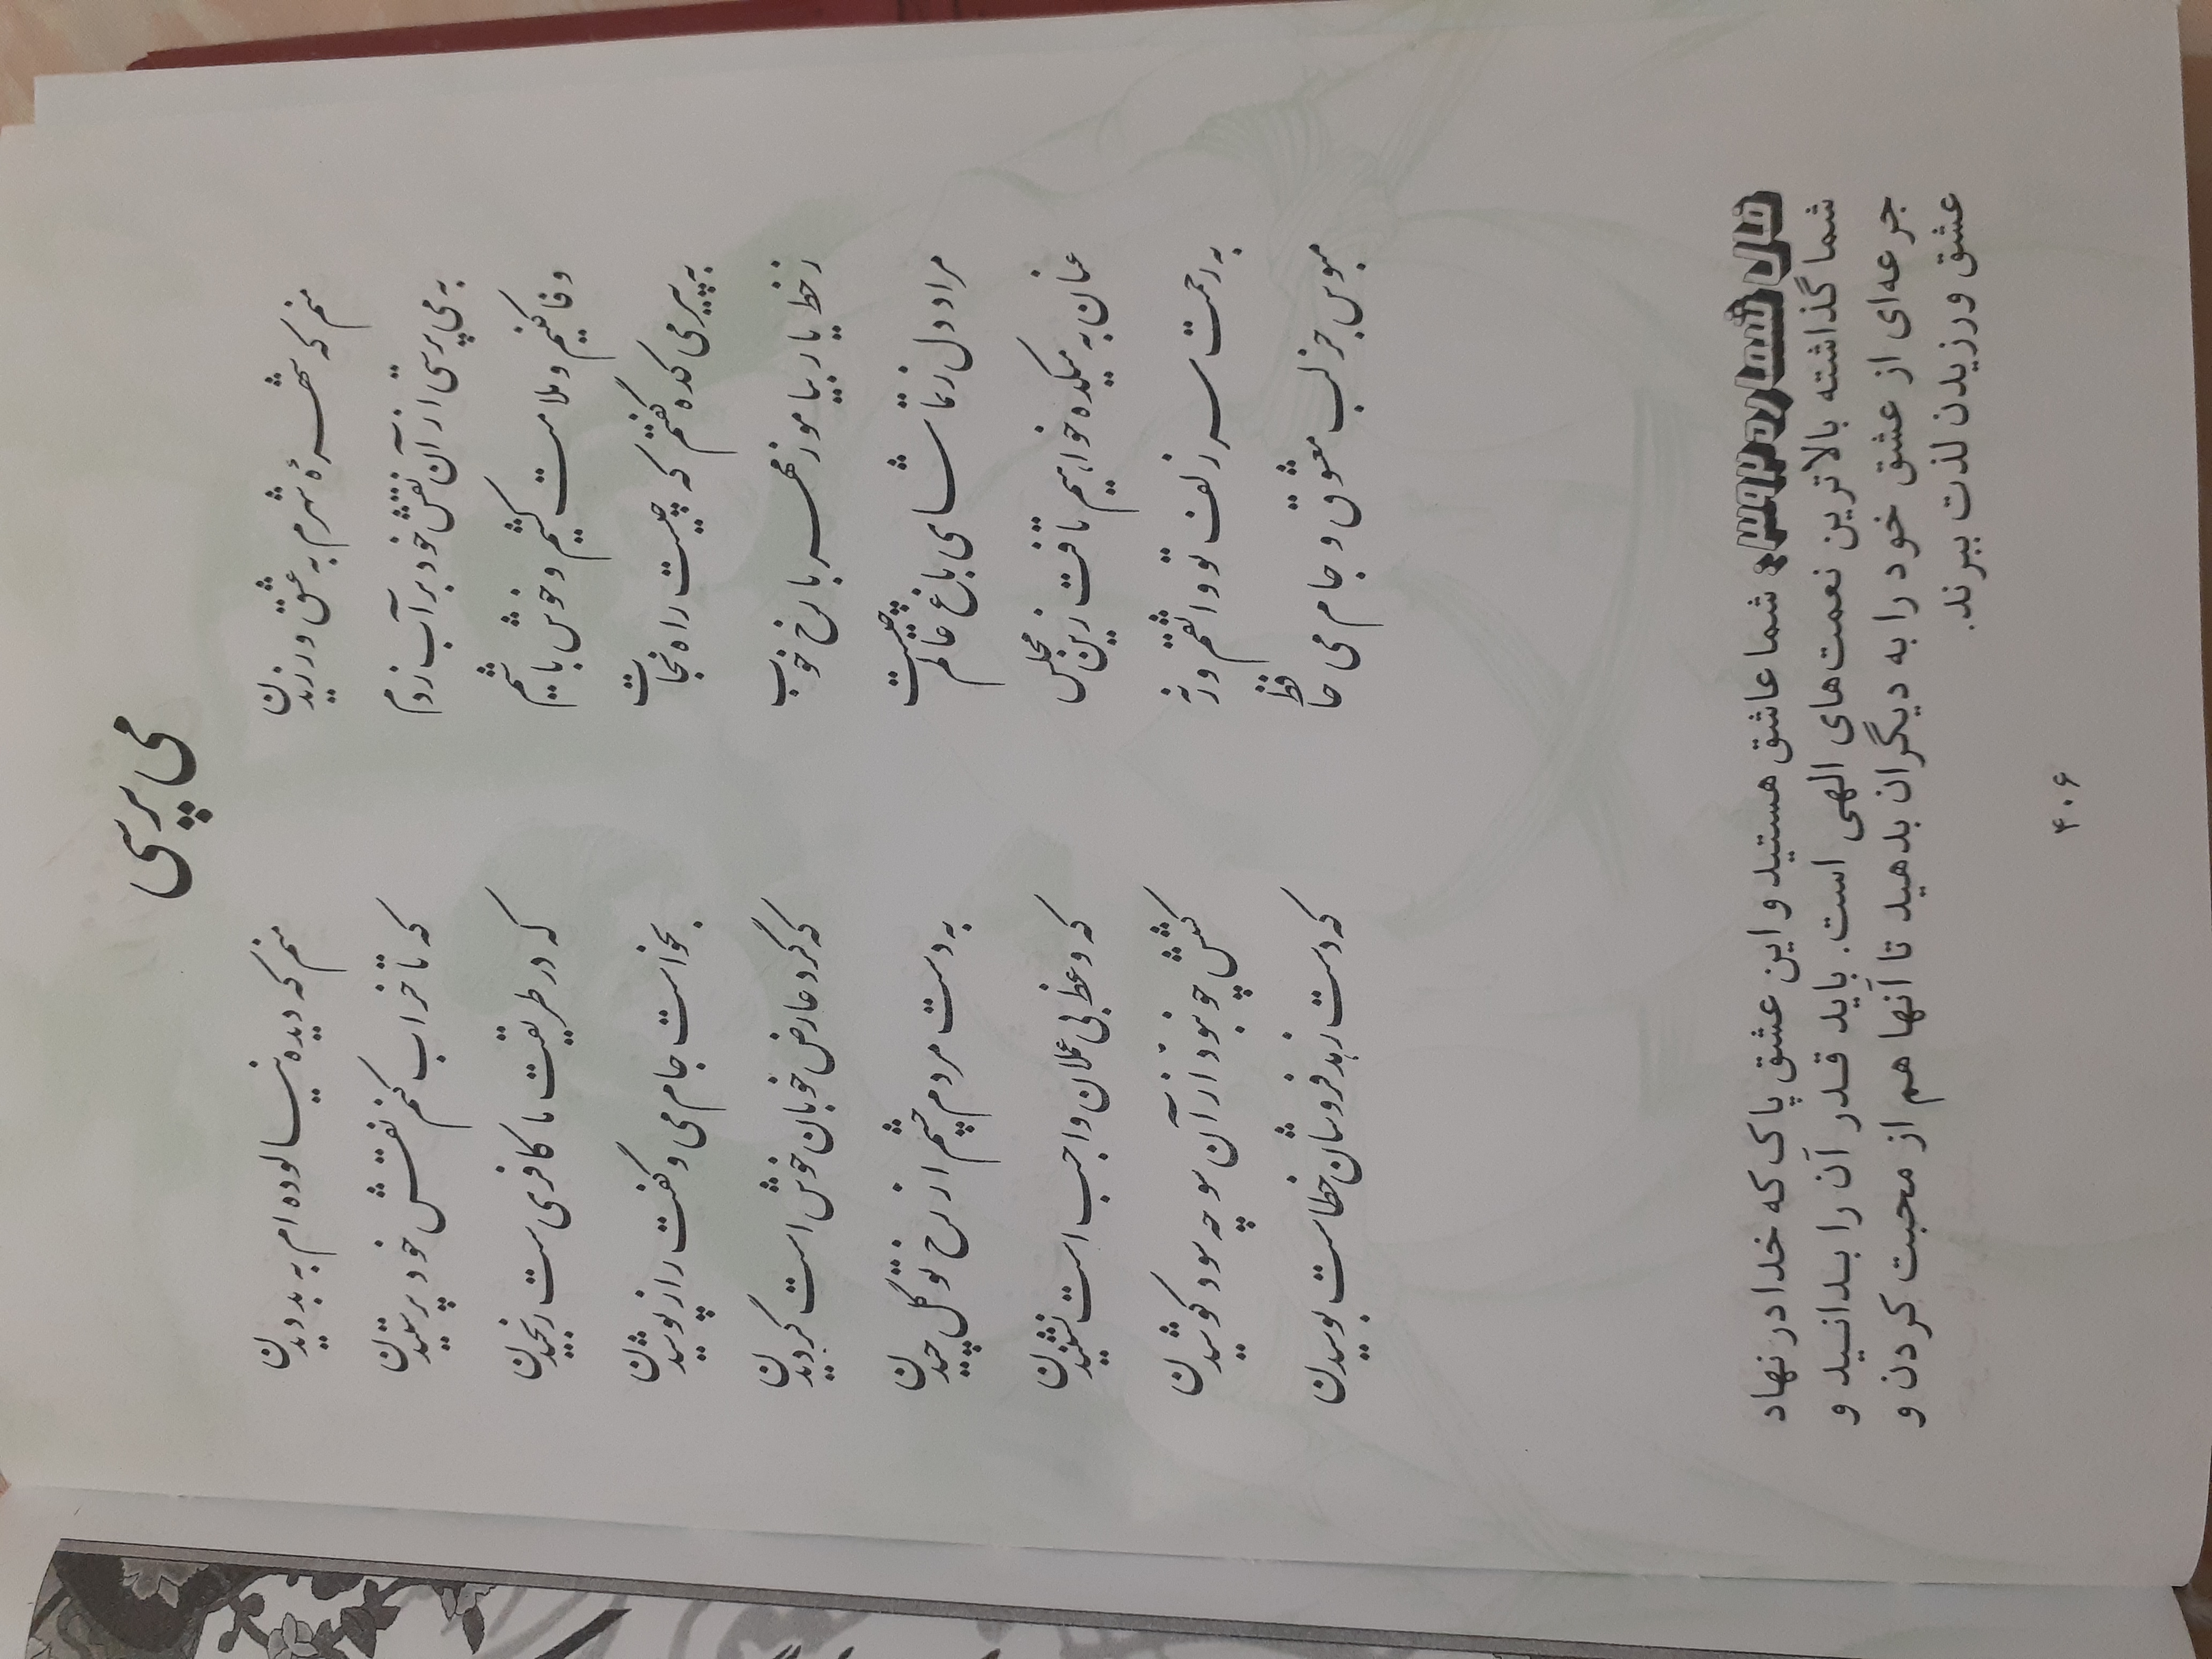 می پرستی
منم که شهرهٔ شهرم به عشق ورزیدن
منم که دیده نیالوده ام به بد دیدن
به می پرستی از آن نقش خود بر آب زدم
که تا خراب کنم نقش خود پرستیدن
وفا کنیم و ملامت کشیم و خوش باشیم
که در طریقت ما کافری ست رنجیدن
به پیر می کده گفتم که چیست راه نجات
بخواست جام می و گفت راز پوشیدن
ز خط یار بیاموز مهر با رخ خوب
که گرد عارض خوبان خوش است گردیدن
مراد دل ز تماشای باغ عالم چیست
به دست مردم چشم از رخ تو گل چیدن
عنان به میکده خواهیم تافت زین مجلس
که وعظ بی عملان واجب است نشنیدن
به رحمت سر زلف تو واثقم ورنه
کشش چو نبود از آن سو چه سود کوشیدن
مبوس جز لب معشوق و جام می حافظ
که دست زهد فروشان خطاست بوسیدن
شما عاشق هستید و این عشق پاک که خدا در نهاد
شما گذاشته بالاترین نعمت‌های الهی است. باید قدر آن را بدانید و
جرعه‌ای از عشق خود را به دیگران بدهید تا آنها هم از محبت کردن و
عشق ورزیدن لذت ببرند.
۴۰۶